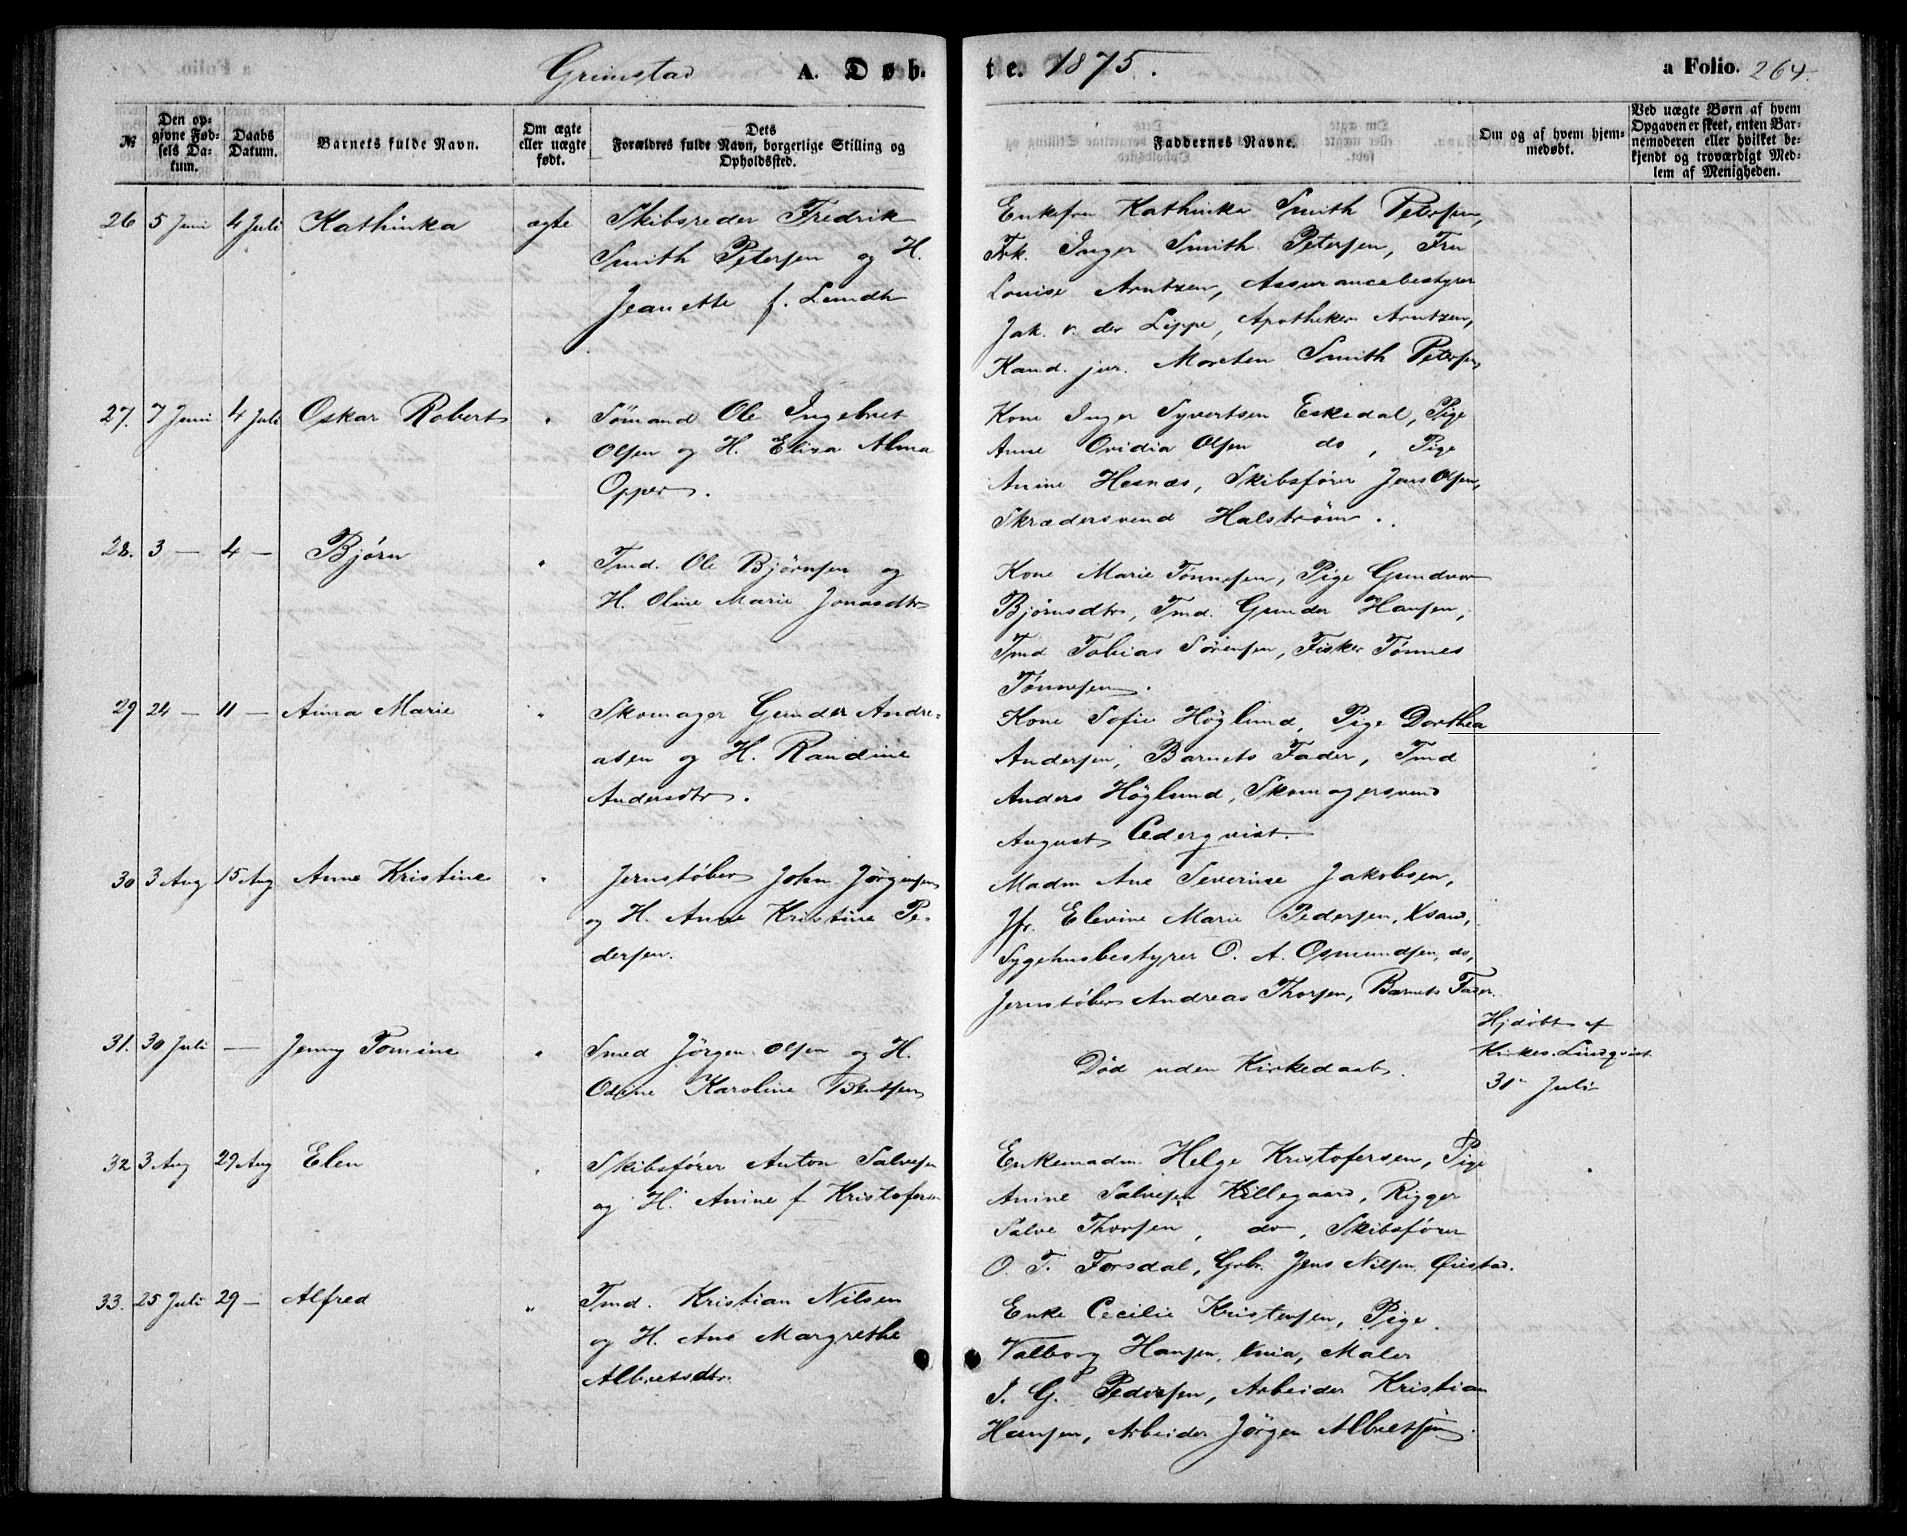 Grimstad A. Døb-
te. 1875. a Folio. 264.
№
Den op-
givne Fød-
sels Da-
tum.
Daabs
Datum.
Barnets fulde Navn.
Om ægte
eller uægte
født.
Dets
Forældres fulde Navn, borgerlige Stilling og
Opholdssted.
Faddernes Navne.
Om og af hvem hjem-
medøbt.
Ved uægte Børn af hvem
Opgaven er skeet, enten Bar-
nemoderen eller hvilket be-
kjendt og troværdigt Med-
lem af Menigheden.
26 5 Juni 4 Juli Kathinka ægte Skibsreder Fredrik
Smith Petersen og H.
Jeanette f. Lundh
Enkefru Kathinka Smith Petersen,
Frk. Inger Smith Petersen, Fru
Louise Arntzen, Assurancebestyrer
Jak. v. der Lippe, Apotheker Arntzen,
Kand. jur. Morten Smith Petersen
27. 7 Juni 4 Juli Oskar Robert " Sømand Ole Ingebret
Olsen og H. Elisa Alma
Opper.
Kone Inger Syvertsen Eskedal, Pige
Anne Ovidia Olsen do, Pige
Anine Hesnæs, Skibsfører Jens Olsen,
Skrædersvend Halstrøm.
28. 3 — 4 — Bjørn " Tmd. Ole Bjørnsen og
H. Oline Marie Jonasdtr
Kone Marie Tønnesen, Pige Gundvor
Bjørnsdtr, Tmd. Gunder Hansen,
Tmd Tobias Sørensen, Fisker Tønnes
Tønnesen.
29 24 — 11 — Anna Marie " Skomager Gunder Andre-
asen og H. Randine
Andersdtr.
Kone Sofie Höglund, Pige Dorthea
Andersen, Barnets Fader, Tmd
Anders Höglund, Skomagersvend
August Cederqvist.
30 3 Aug 15 Aug Anne Kristine " Jernstøber John Jørgensen
og H. Anne Kristine Pe-
dersen.
Madm Ane Severine Jakobsen,
Jfr. Elevine Marie Pedersen, Xsand,
Sygehusbestyrer O. A. Osmundsen, do,
Jernstøber Andreas Thorsen, Barnets Fader.
31. 30 Juli — Jenny Tomine " Smed Jørgen Olsen og H.
Odine Karoline Bentsen
Død uden Kirkedaab.
Hjdøbt af
Kirkes. Lindqvist
31te Juli
32 3 Aug 29 Aug Elen " Skibsfører Anton Salvesen
og H. Anine f Kristofersen
Enkemadm. Helge Kristofersen, Pige
Anine Salvesen Killegaard, Rigger
Salve Thorsen, do, Skibsfører
O. T. Forsdal, Grbr. Jens Nilsen Øiestad.
33. 25 Juli 29 — Alfred " Tmd. Kristian Nilsen
og H. Ane Margrethe
Albretsdtr.
Enke Cecilie Kristensen, Pige
Valborg Hansen, Maler
P. G. Pedersen, Arbeider Kristian
Hansen, Arbeider Jørgen Albretsen.